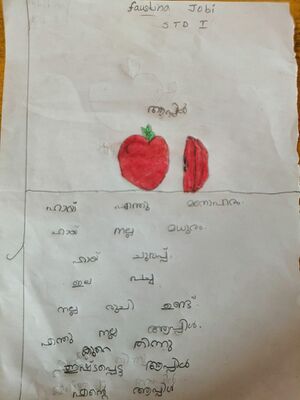 Faustina Jobi
STD I
ആപ്പിൾ
ഹായ് എന്തു മനോഹരം
ഹായ് നല്ല മധുരം
ഹായ് ചുവപ്പ്
ഇല പച്ച
നല്ല രുചി ഉണ്ട്.
എന്തു നല്ല ആപ്പിൾ.
കുറെ തിന്നു
ഇഷ്ടപ്പെട്ട ആപ്പിൾ
എന്റെ ആപ്പിൾ